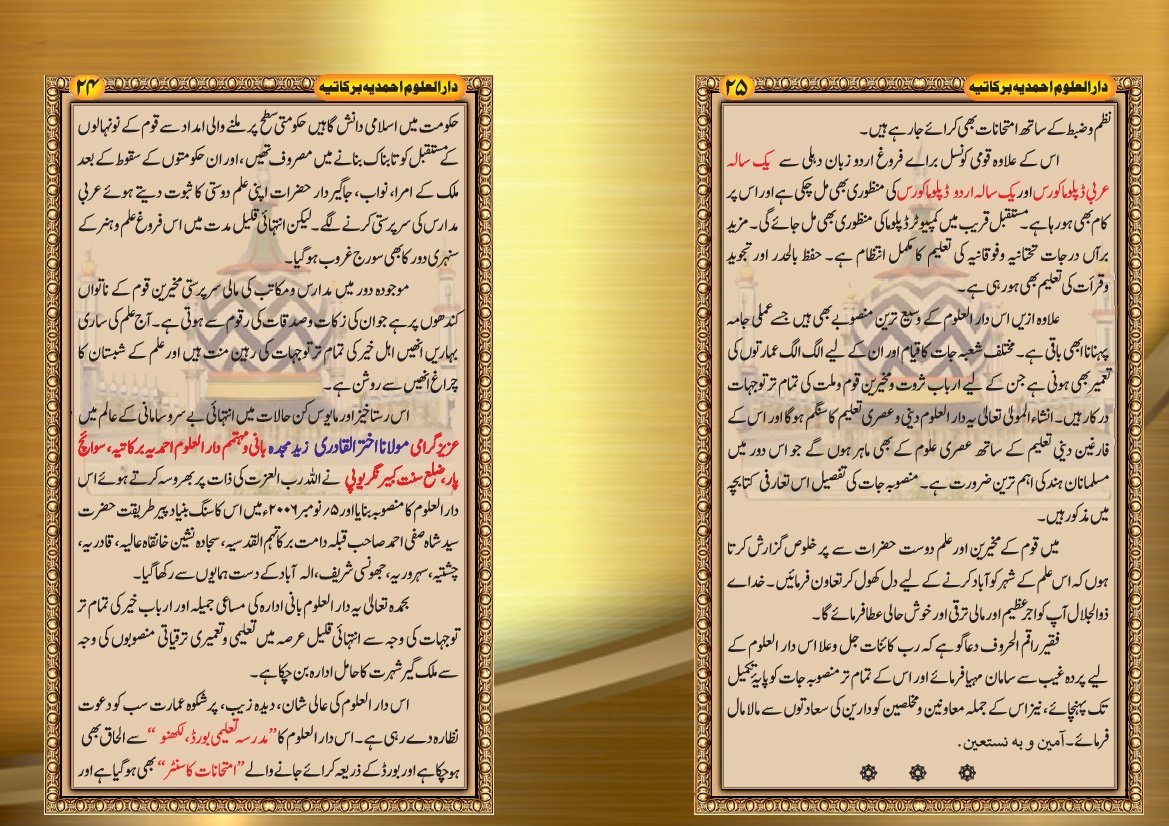 دارالعلوم احمدیہ برکاتیہ
۲۴
حکومت میں اسلامی دانش گاہیں حکومتی سطح پر ملنے والی امداد سے قوم کے نونہالوں
کے مستقبل کو تابناک بنانے میں مصروف تھیں، اور ان حکومتوں کے سقوط کے بعد
ملک کے امرا، نواب، جاگیردار حضرات اپنی علم دوستی کا ثبوت دیتے ہوئے عربی
مدارس کی سرپرستی کرنے لگے۔ لیکن انتہائی قلیل مدت میں اس فروغ علم وہنر کے
سنہری دور کا بھی سورج غروب ہوگیا۔
موجودہ دور میں مدارس ومکاتب کی مالی سرپرستی مخیرین قوم کے ناتواں
کندھوں پر ہے جو ان کی زکات وصدقات کی رقوم سے ہوتی ہے۔ آج علم کی ساری
بہاریں انھیں اہل خیر کی تمام تر توجہات کی رہین منت ہیں اور علم کے شبستان کا
چراغ انھیں سے روشن ہے۔
اس رستاخیز اور مایوس کن حالات میں انتہائی بے سروسامانی کے عالم میں
عزیز گرامی مولانا اختر القادری زید مجدہ بانی ومہتمم دارالعلوم احمدیہ برکاتیہ، سوانچ
پار، ضلع سنت کبیر نگر یوپی نے اللہ رب العزت کی ذات پر بھروسہ کرتے ہوئے اس
دارالعلوم کا منصوبہ بنایا اور ۵؍ نومبر ۲۰۰۶ء میں اس کا سنگ بنیاد پیر طریقت حضرت
سید شاہ صفی احمد صاحب قبلہ دامت برکاتہم القدسیہ، سجادہ نشین خانقاہ عالیہ، قادریہ،
چشتیہ، سہروریہ، جھونسی شریف، الہ آباد کے دست ہمایوں سے رکھا گیا۔
بحمدہ تعالیٰ یہ دارالعلوم بانی ادارہ کی مساعی جمیلہ اور ارباب خیر کی تمام تر
توجہات کی وجہ سے انتہائی قلیل عرصہ میں تعلیمی وتعمیری ترقیاتی منصوبوں کی وجہ
سے ملک گیر شہرت کا حامل ادارہ بن چکا ہے۔
اس دارالعلوم کی عالی شان، دیدہ زیب، پر شکوہ عمارت سب کو دعوت
نظارہ دے رہی ہے۔ اس دارالعلوم کا ”مدرسہ تعلیمی بورڈ، لکھنو“ سے الحاق بھی
ہوچکا ہے اور بورڈ کے ذریعہ کرائے جانے والے ”امتحانات کا سنٹر“ بھی ہوگیا ہے اور
دارالعلوم احمدیہ برکاتیہ
۲۵
نظم وضبط کے ساتھ امتحانات بھی کرائے جارہے ہیں۔
اس کے علاوہ قومی کونسل براے فروغ اردو زبان دہلی سے یک سالہ
عربی ڈپلوما کورس اور یک سالہ اردو ڈپلوما کورس کی منظوری بھی مل چکی ہے اور اس پر
کام بھی ہورہا ہے۔ مستقبل قریب میں کمپیوٹر ڈپلوما کی منظوری بھی مل جائے گی۔ مزید
برآں درجات تحتانیہ وفوقانیہ کی تعلیم کا مکمل انتظام ہے۔ حفظ بالحدر اور تجوید
وقرأت کی تعلیم بھی ہورہی ہے۔
علاوہ ازیں اس دارالعلوم کے وسیع ترین منصوبے بھی ہیں جسے عملی جامہ
پہنانا ابھی باقی ہے۔ مختلف شعبہ جات کا قیام اور ان کے لیے الگ الگ عمارتوں کی
تعمیر بھی ہونی ہے جن کے لیے ارباب ثروت ومخیرین قوم وملت کی تمام تر توجہات
درکار ہیں۔ انشاء المولیٰ تعالیٰ یہ دارالعلوم دینی وعصری تعلیم کا سنگم ہوگا اور اس کے
فارغین دینی تعلیم کے ساتھ عصری علوم کے بھی ماہر ہوں گے جو اس دور میں
مسلمانان ہند کی اہم ترین ضرورت ہے۔ منصوبہ جات کی تفصیل اس تعارفی کتابچہ
میں مذکور ہیں۔
میں قوم کے مخیرین اور علم دوست حضرات سے پر خلوص گزارش کرتا
ہوں کہ اس علم کے شہر کو آباد کرنے کے لیے دل کھول کر تعاون فرمائیں۔ خداے
ذوالجلال آپ کو اجر عظیم اور مالی ترقی اور خوش حالی عطا فرمائے گا۔
فقیر راقم الحروف دعاگو ہے کہ رب کائنات جل وعلا اس دارالعلوم کے
لیے پردہ غیب سے سامان مہیا فرمائے اور اس کے تمام تر منصوبہ جات کو پایۂ تکمیل
تک پہنچائے، نیز اس کے جملہ معاونین ومخلصین کو دارین کی سعادتوں سے مالا مال
فرمائے۔ آمین و بہ نستعین.